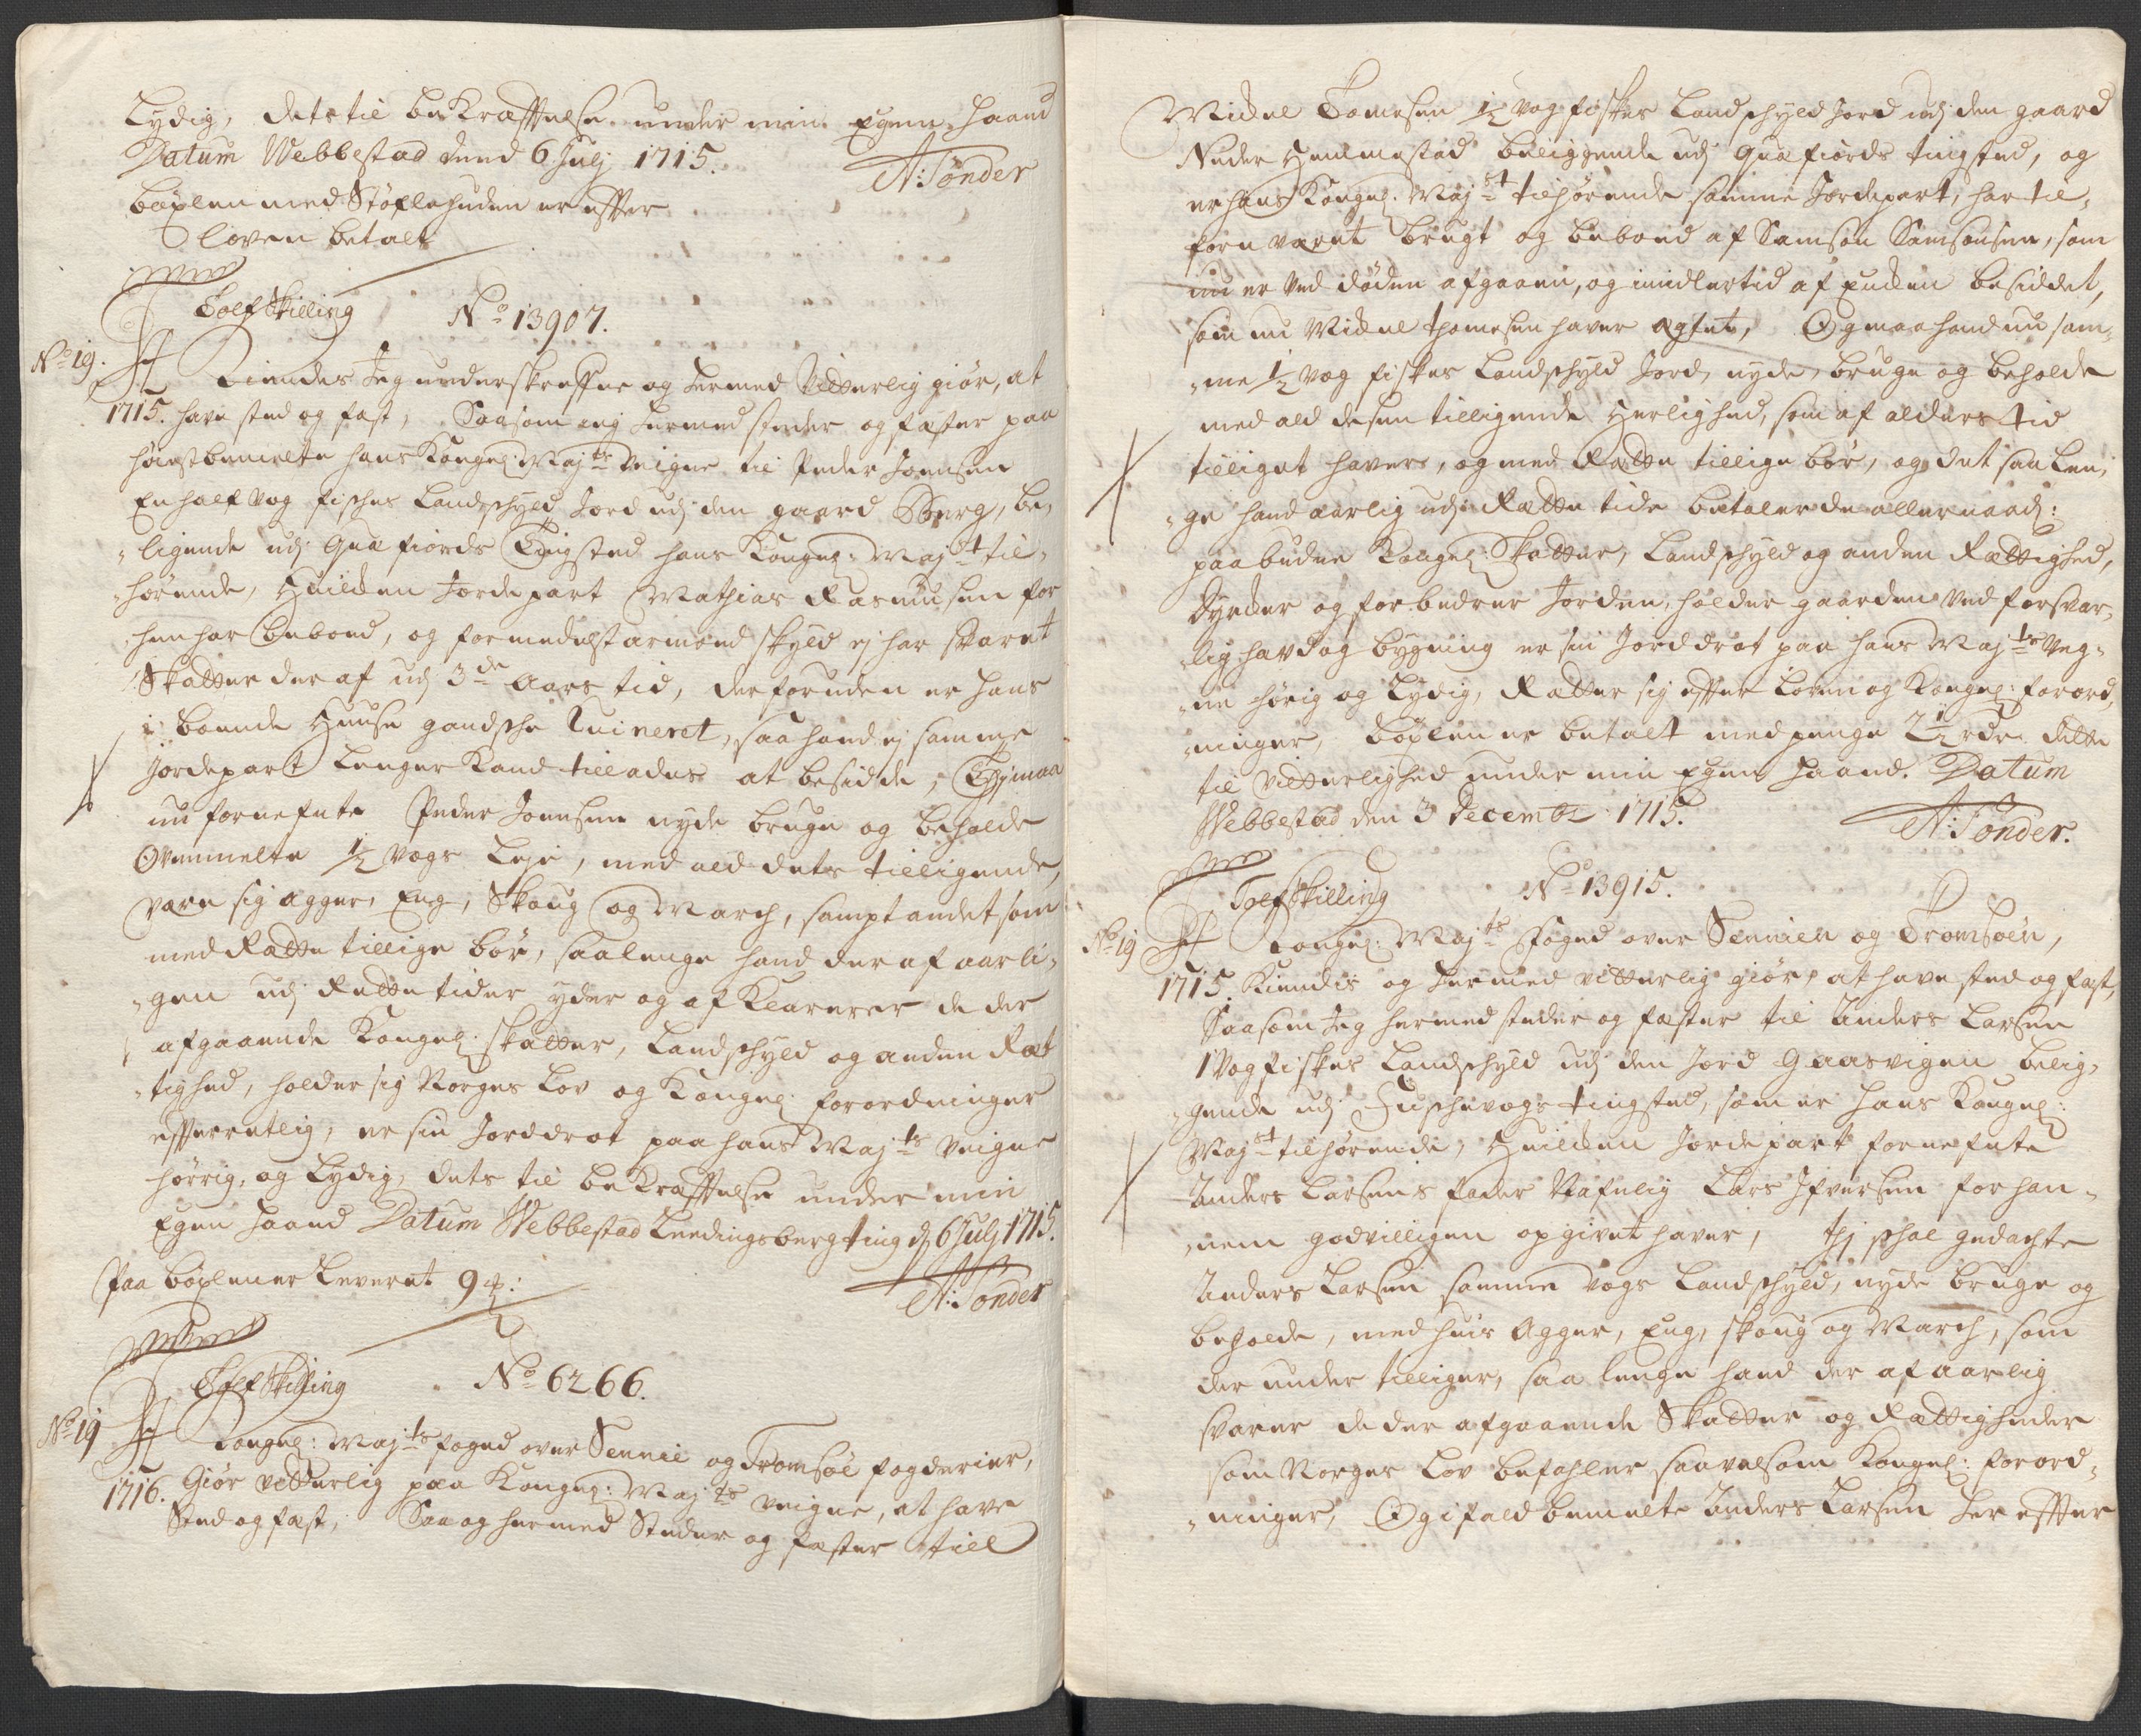 Lydig, dets til bekræfftelse under min Egen Haand
Datum Webbestad dend 6 Julj 1715.
A: Tønder
böxlen med Støflehuden er effter
loven betalt
Tolf Skilling No 13907.
No 19. Kiendes Jeg underskrefne og hermed Vitterlig giör, at
1715. have sted og fæst, Saasom ieg hermed steder og fæster paa
høistbemelte hans Kongel: Maj:ts Veigne til Peder Joensen
En half vog fisches Landschyld Jord udj den gaard Berg, be,,
,,ligende udj Quæfiords Tingsted hans Kongel: Maj:st til,,
,,hørende, Huilken Jorde part Mathias Rasmusen for
hen har beboed, og formedelst armoed skyld ej har svaret
Skatter der af udj 3de Aars tid, der foruden er hans
i boende Huuse gandsche Ruineret, saa hand ej samme
Jordepart lenger Kand tillades at besidde, Thj maa
nu fornefnte Peder Joensen nyde bruge og beholde
Ovenmelte 1/2 vogs Leje, med ald dets tilligende,
være sig agger, Eng, Skoug og March, sampt andet som
med Rætte tillige bör, saalenge hand der af aarli,,
,,gen udj Rette tider yder og af Klarerer de der
afgaaende Kongel: skatter, Landschyld og anden Ræt
,,tighed, holder sig Norges Lov og Kongel: forordninger
effterretlig, er sin Jorddrot paa hans Maj:ts Veigne
hörrig, og Lydig, dets til bekræfftelse under min
Egen Haand Datum Webbestad Leedingsberg ting d 6 Julj 1715.
Paa böxlen er Leveret 9
A: Tønder
Tolf Skilling No 6266.
No 19 Kongel: Maj:ts foged over Sennie og Tromsöe fogderier,
1716. Giör vitterlig paa Kongel: Maj:ts Veigne, at have
Sted og fæst, Saa og hermed Steder og fæster till
Mickel Tomesen 1/2 vog fiskes Landschyld Jord udj den gaard
Neder Hemmestad beliggende udj Quæfiords tingsted, og
er hans Kongel: Maj:st tilhørende samme Jordepart, har til,,
forn været brugt og beboed af Samson Samsonsen, som
nu er ved döden afgaaen, og imidlertid af Enken besiddet,
som nu Mickel Thomesen haver ægtet, Og maa hand nu sam,,
,,me 1/2 vog fiskes Landschyld Jord, nyde, bruge og beholde
med ald desen tilligende Herlighed, som af alders tid
tilliget haver, og med Rætte tillige bör, og det saa Len,,
,,ge hand aarlig udj Rætte tide betaler de allernaad:
paabudne Kongel: Skatter, Landschyld og anden Rettighed,
dyrcker og forbedrer Jorden, holder gaarden ved forsvar,,
,,lig hævd og bygning er sin Jorddrot paa hans Maj:ts Veg,,
,,ne hörig og Lydig, Retter sig effter Loven og Kongel: forord,,
,,ninger, böxlen er betalt med penge 2 1/2 rdr. dette
til Vitterlighed under min Egen Haand. Datum
Webbestad den 3 Decembr 1715.
A: Tønder.
Tolf Skilling No 13915.
No 19 Kongel: Maj:ts foged over Sennien og Tromsöen,
1715. Kiendis og hermed vitterlig giör, at have sted og fæst,
Saasom Jeg hermed steder og fæster til Anders Larsen
1 Vog fiskes Landschyld udj den Jord Gaasvigen belig,,
,,gende udj Fuschevogs tingsted, som er hans Kongel:
Maj:st tilhørende, Huilken Jorde part fornefnte
Anders Larsens fader Nafnlig Lars Ifversen for han,,
,,nem godvilligen op givet haver, thj schal gedachte
Anders Larsen samme vogs Landschyld, nyde bruge og
beholde, med huis Agger, Eng, skoug og March, som
der under tilliger, saa lenge hand der af aarlig
svarer de der afgaaende Skatter og Rættigheder
som Norges Lov befahler saavelsom Kongel: forord,,
,,ninger, Og ifald bemelte Anders Larsen her effter